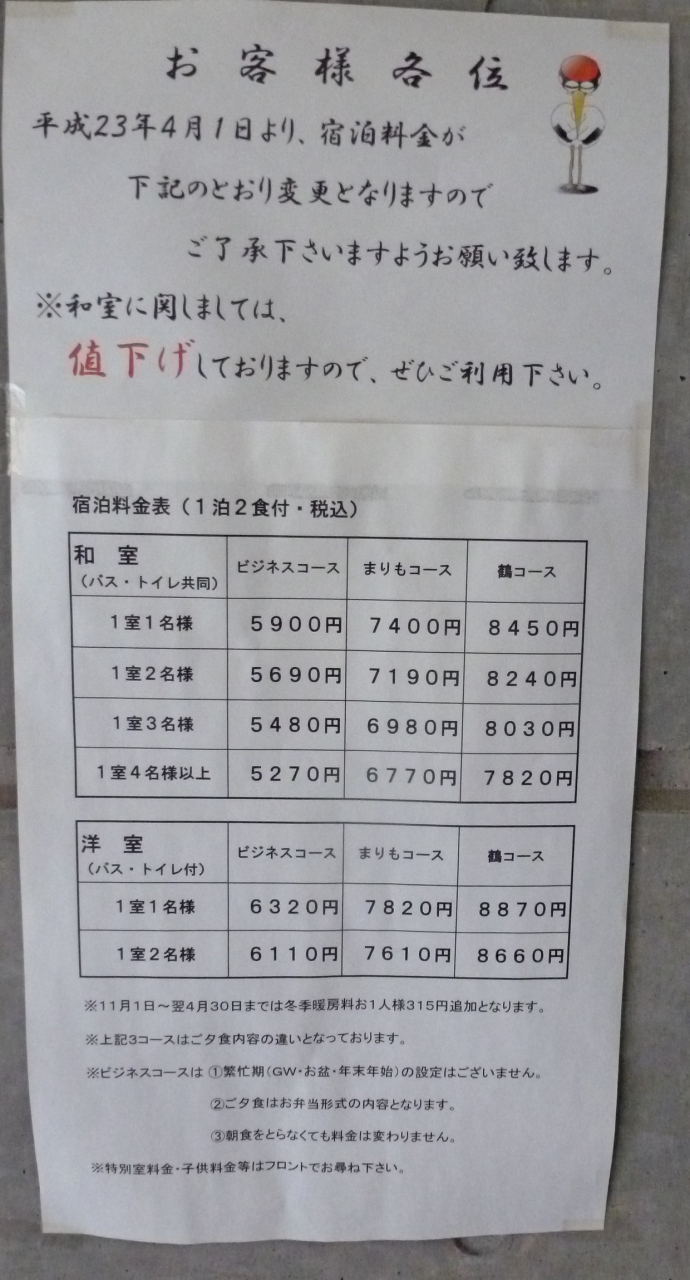 お客様各位
平成23年4月1日より、宿泊料金が
下記のとおり変更となりますので
ご了承下さいますようお願い致します。
※和室に関しましては、
値下げしておりますので、ぜひご利用下さい。
宿泊料金表（1泊2食付・税込）
和室 ビジネスコース まりもコース 鶴コース
（バス・トイレ共同）
1室1名様 5900円 7400円 8450円
1室2名様 5690円 7190円 8240円
1室3名様 5480円 6980円 8030円
1室4名様以上 5270円 6770円 7820円
洋室 ビジネスコース まりもコース 鶴コース
（バス・トイレ付）
1室1名様 6320円 7820円 8870円
1室2名様 6110円 7610円 8660円
※11月1日～翌4月30日までは冬季暖房料お1人様315円追加となります。
※上記3コースはご夕食内容の違いとなっております。
※ビジネスコースは ①繁忙期（GW・お盆・年末年始）の設定はございません。
②ご夕食はお弁当形式の内容となります。
③朝食をとらなくても料金は変わりません。
※特別室料金・子供料金等はフロントでお尋ね下さい。